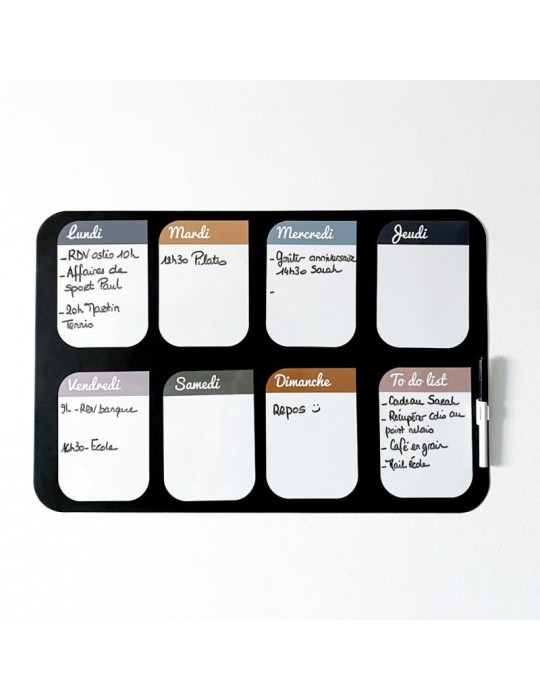 Lundi
- RDV ostéo 10h
- Affaires de
sport Paul
- 20h Martin
Tennis
Mardi
12h30 Pilates
Mercredi
- Goûter anniversaire
14h30 Sarah
-
Jeudi
Vendredi
9h - RDV banque
16h30 - Ecole
Samedi
Dimanche
Repos :)
To do list
- Cadeau Sarah
- Récupérer colis au
point relais
- Café en grain
- Mail École